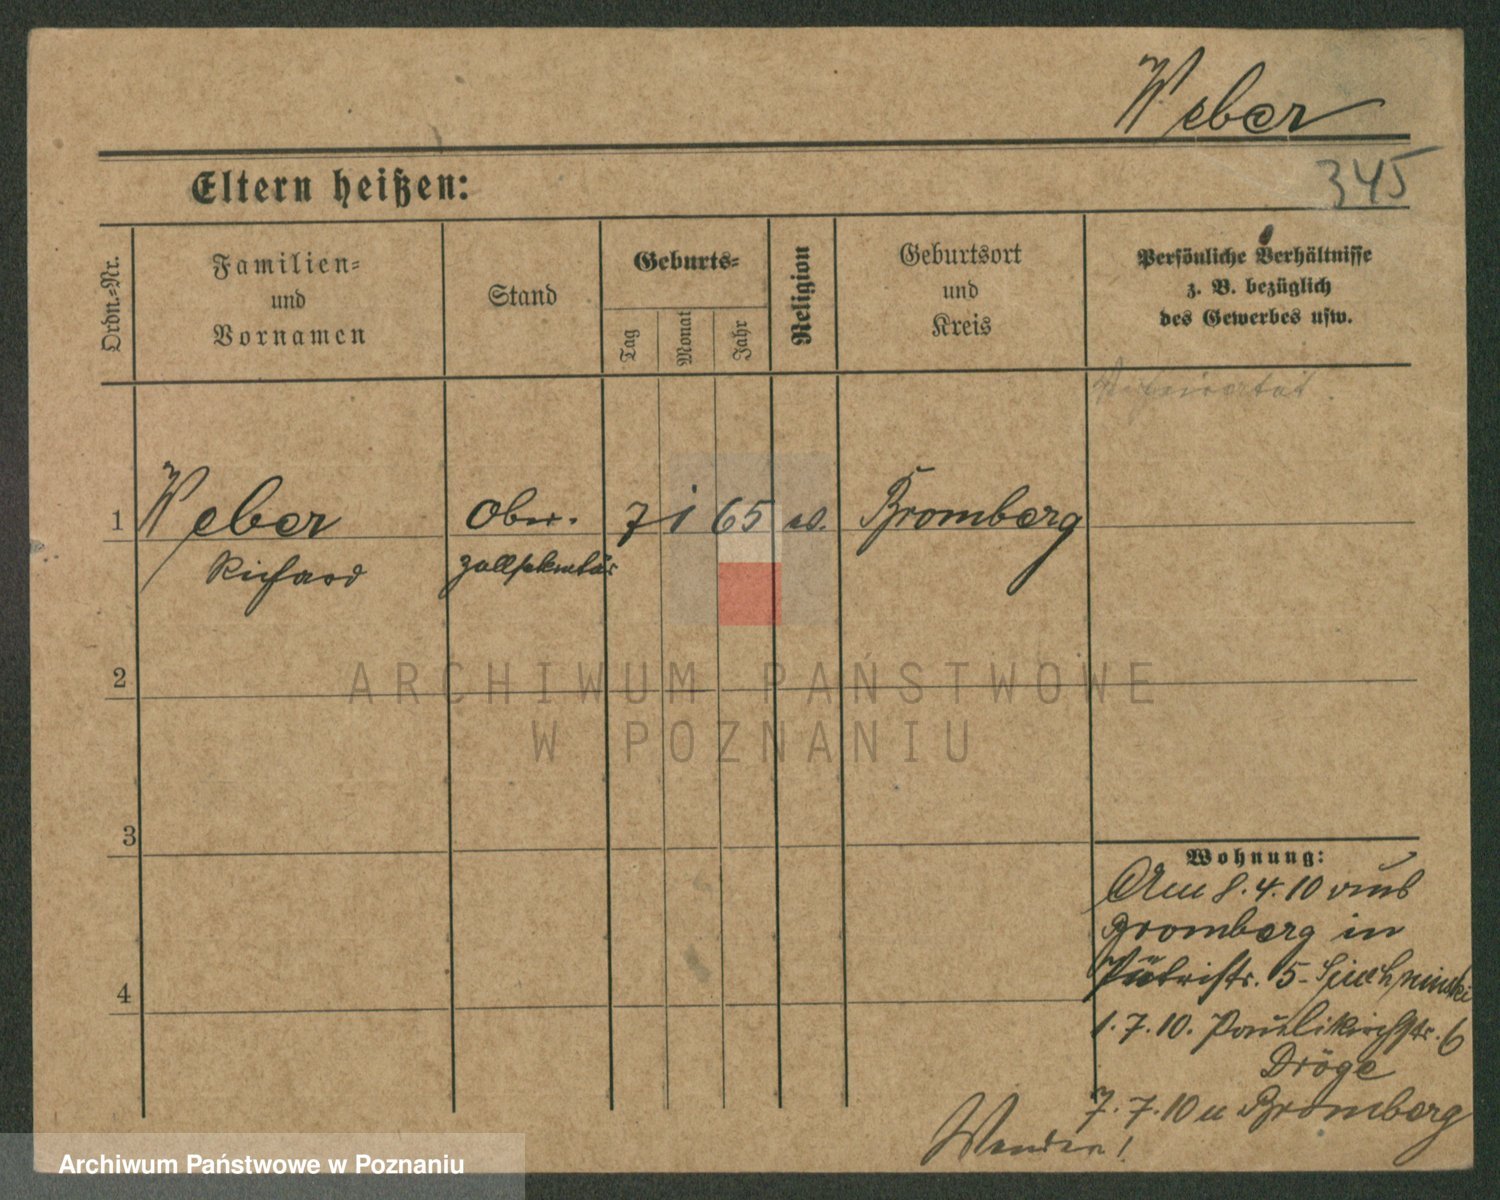 Weber
345
Eltern heißen:
Ordn.-Nr.
Familien-
und
Vornamen
Stand
Geburts-
Tag
Monat
Jahr
Religion
Geburtsort
und
Kreis
Persönliche Verhältnisse
z. B. bezüglich
des Gewerbes usw.
1 Weber Ober- 7 1 65 ev. Bromberg
Richard zollsekretär
2
3
4
Wohnung:
Am 8.4.10 aus
Bromberg in
5
1.7.10. Paulikirchstr. 6
Dröge
7.7.10 n Bromberg
Wenden!
ARCHIWUM PAŃSTWOWE
W POZNANIU
Archiwum Państwowe w Poznaniu